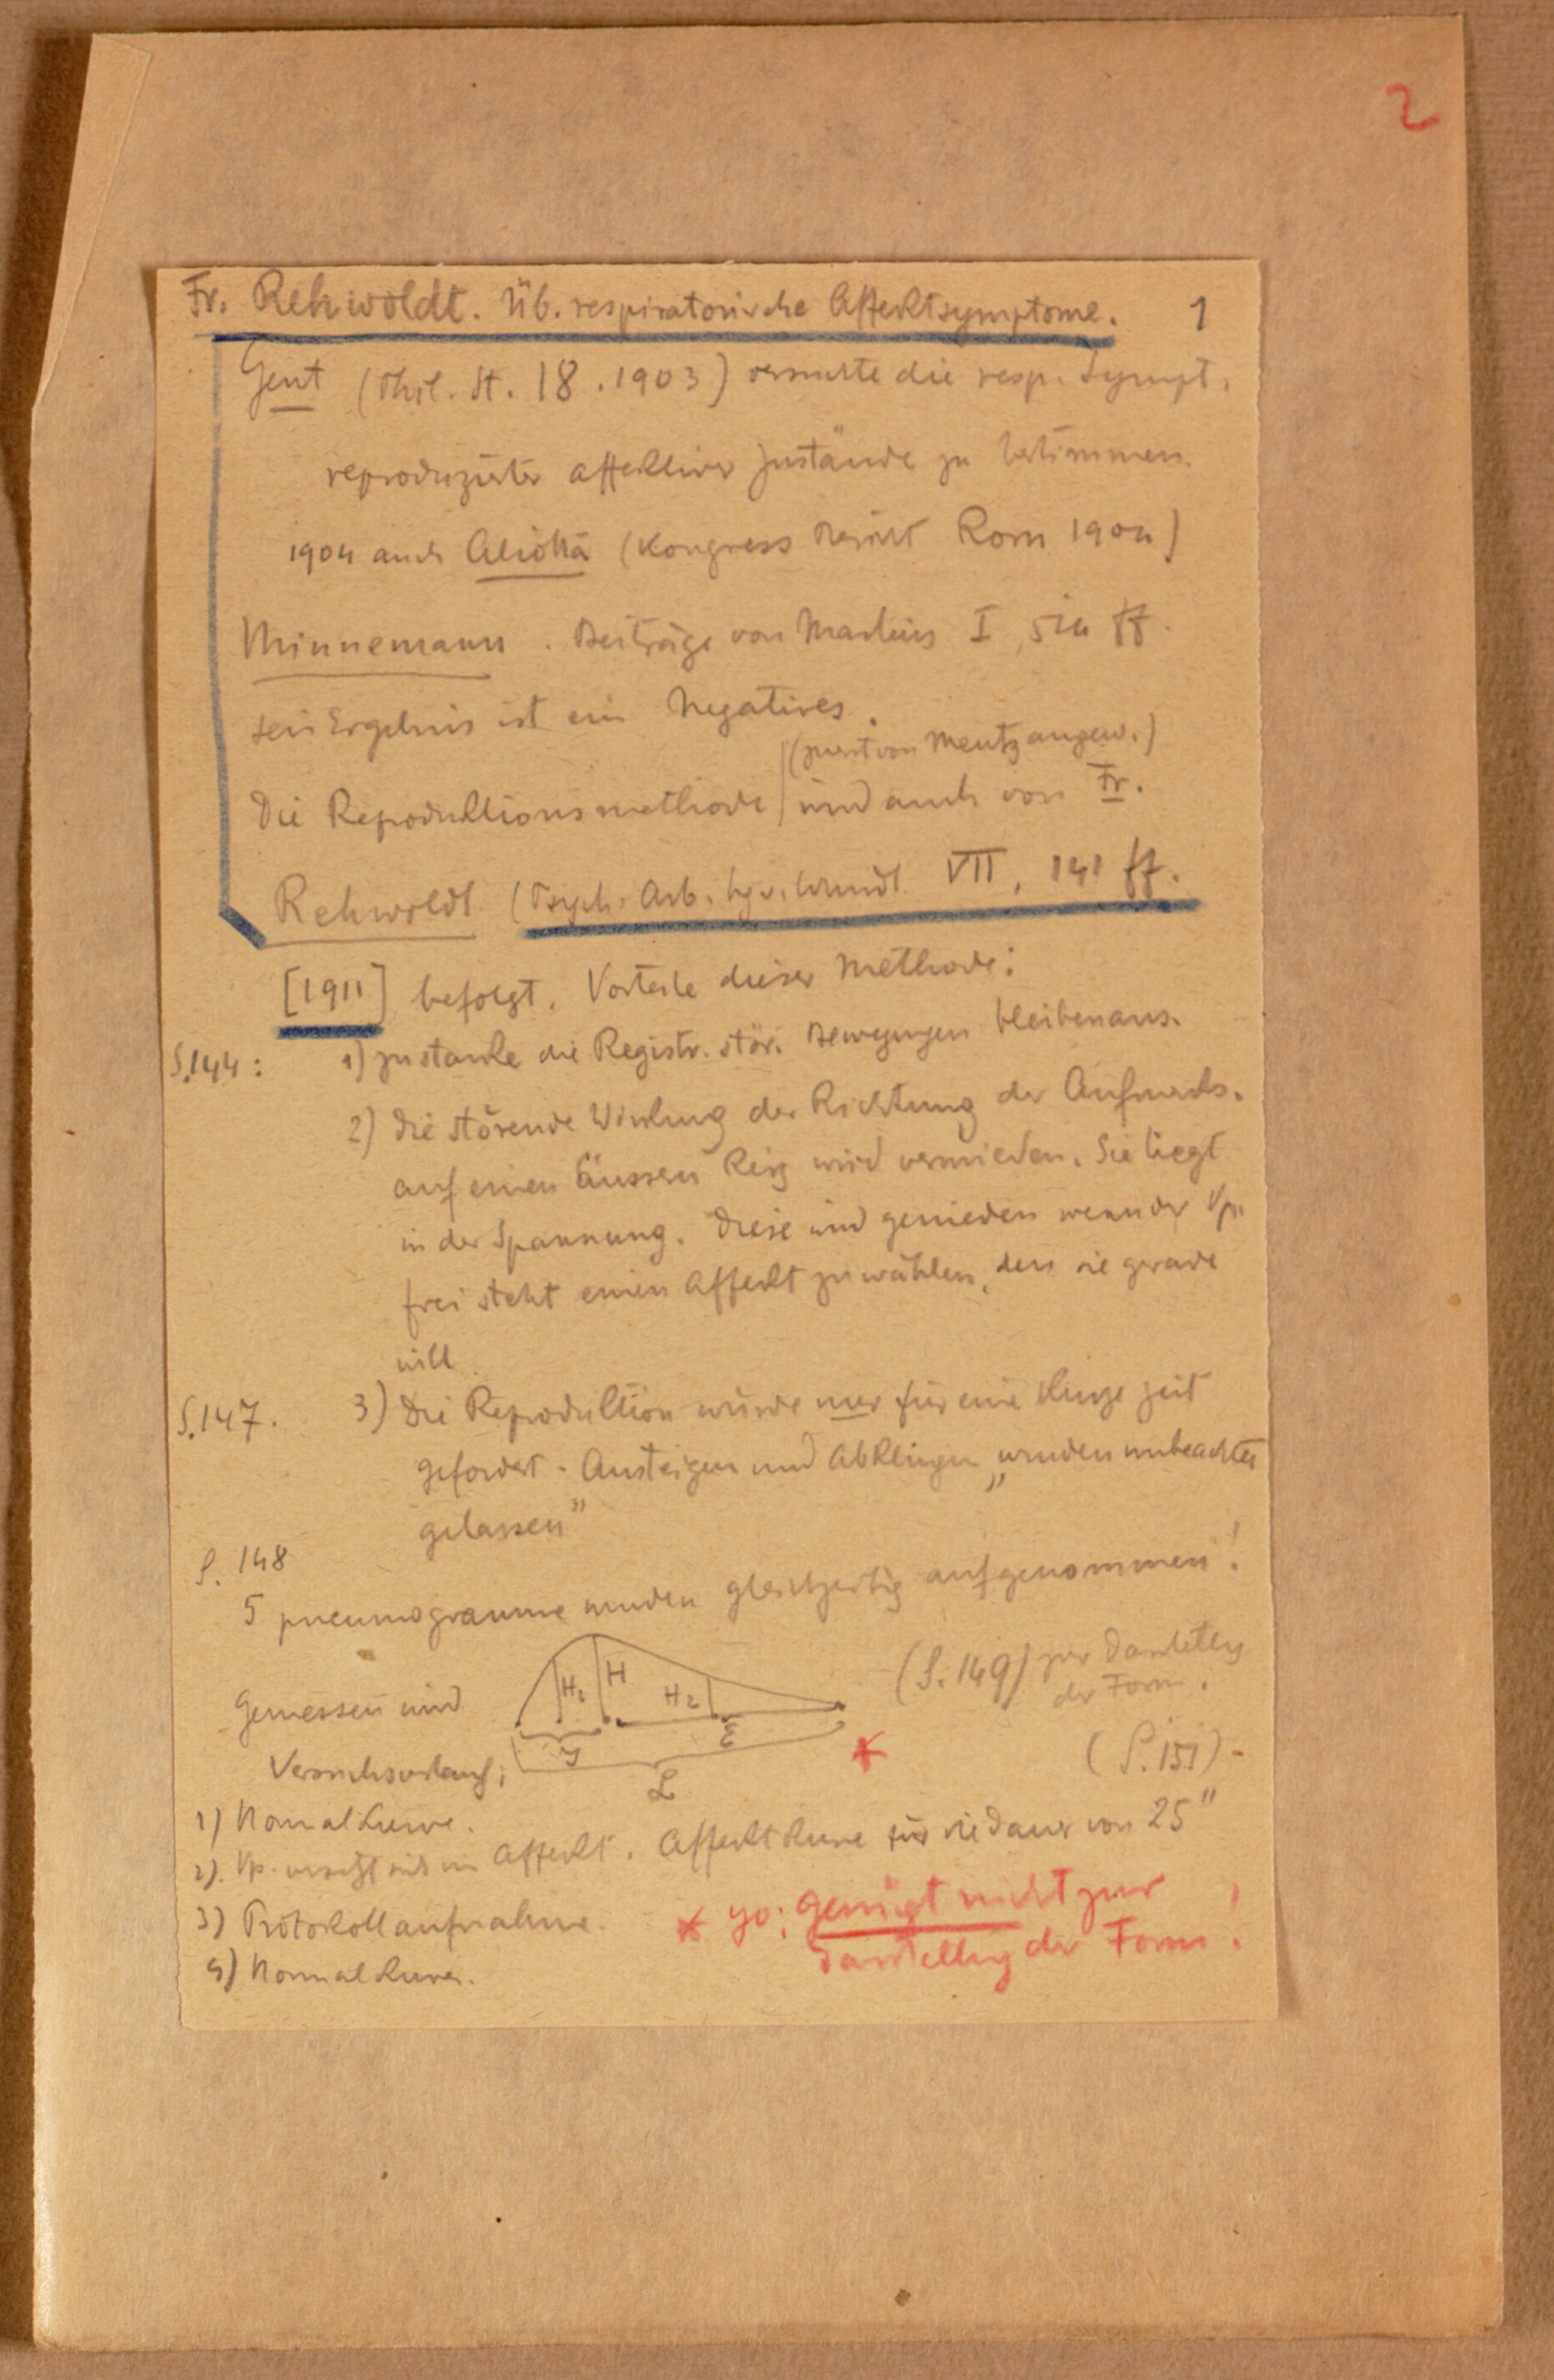 2
Fr. Rehwoldt. Üb. respiratorische Affektsymptome. 1
Gent (Phil. St. 18. 1903) versuchte die resp. Sympt.
reproduzierter affektiver Zustände zu bestimmen.
1904 auch Aliotta (Kongress Bericht Rom 1904)
Minnemann. Beiträge von Martius I, 514 ff.
sein Ergebnis ist ein Negatives.
(zuerst von Mentz angew.)
Die Reproduktionsmethode wird auch von Fr.
Rehwoldt (Psych. Arb. hg v. Wundt VII, 141 ff.
[1911] befolgt. Vorteile dieser Methode:
S.144: 1) zu starke die Registr. stör. Bewegungen bleiben aus.
2) Die störende Wirkung der Richtung der Aufmerks.
auf einen äussern Reiz wird vermieden. Sie liegt
in der Spannung. Diese wird gemieden wenn der Vp.
frei steht einen Affekt zu wählen, den sie gerade
will.
S.147. 3) Die Reproduktion wurde nur für eine kurze Zeit
gefordert. Ansteigen und Abklingen „wurden unbeachtet
gelassen”
S. 148
5 pneumogramme wurden gleichzeitig aufgenommen!
H1 H H2
(S. 149) zur Darstellg
der Form.
Gemessen wird
J E
*
(S. 151) -
Versuchsverlauf:
L
1) Normalkurve.
2). Vp. versetzt sich in Affekt. Affektkurve für die Dauer von 25"
3) Protokollaufnahme.
* yo: genügt nicht zur
Darstellung der Form!
4) Normalkurve.